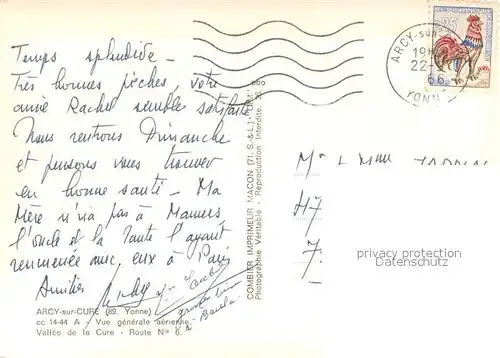 Temps splendide -
Très bonnes pêches, votre
amie Rachel semble satisfaite
Nous rentrons Dimanche
et pensons vous trouver
en bonne santé - Ma
Mère n'ira pas à Mamers
l'oncle et la Tante l'ayant
ramenée avec eux à Paris
Amitiés
ARCY-sur-CURE (89. Yonne)
cc 14-44 A - Vue générale aérienne.
Vallée de la Cure - Route Nle 6.
COMBIER IMPRIMEUR MACON (71. S.-&-L.)
Photographie Véritable - Reproduction Interdite.
ARCY-sur-
22-
66
YONNE
0,25
47
7
privacy protection
Datenschutz